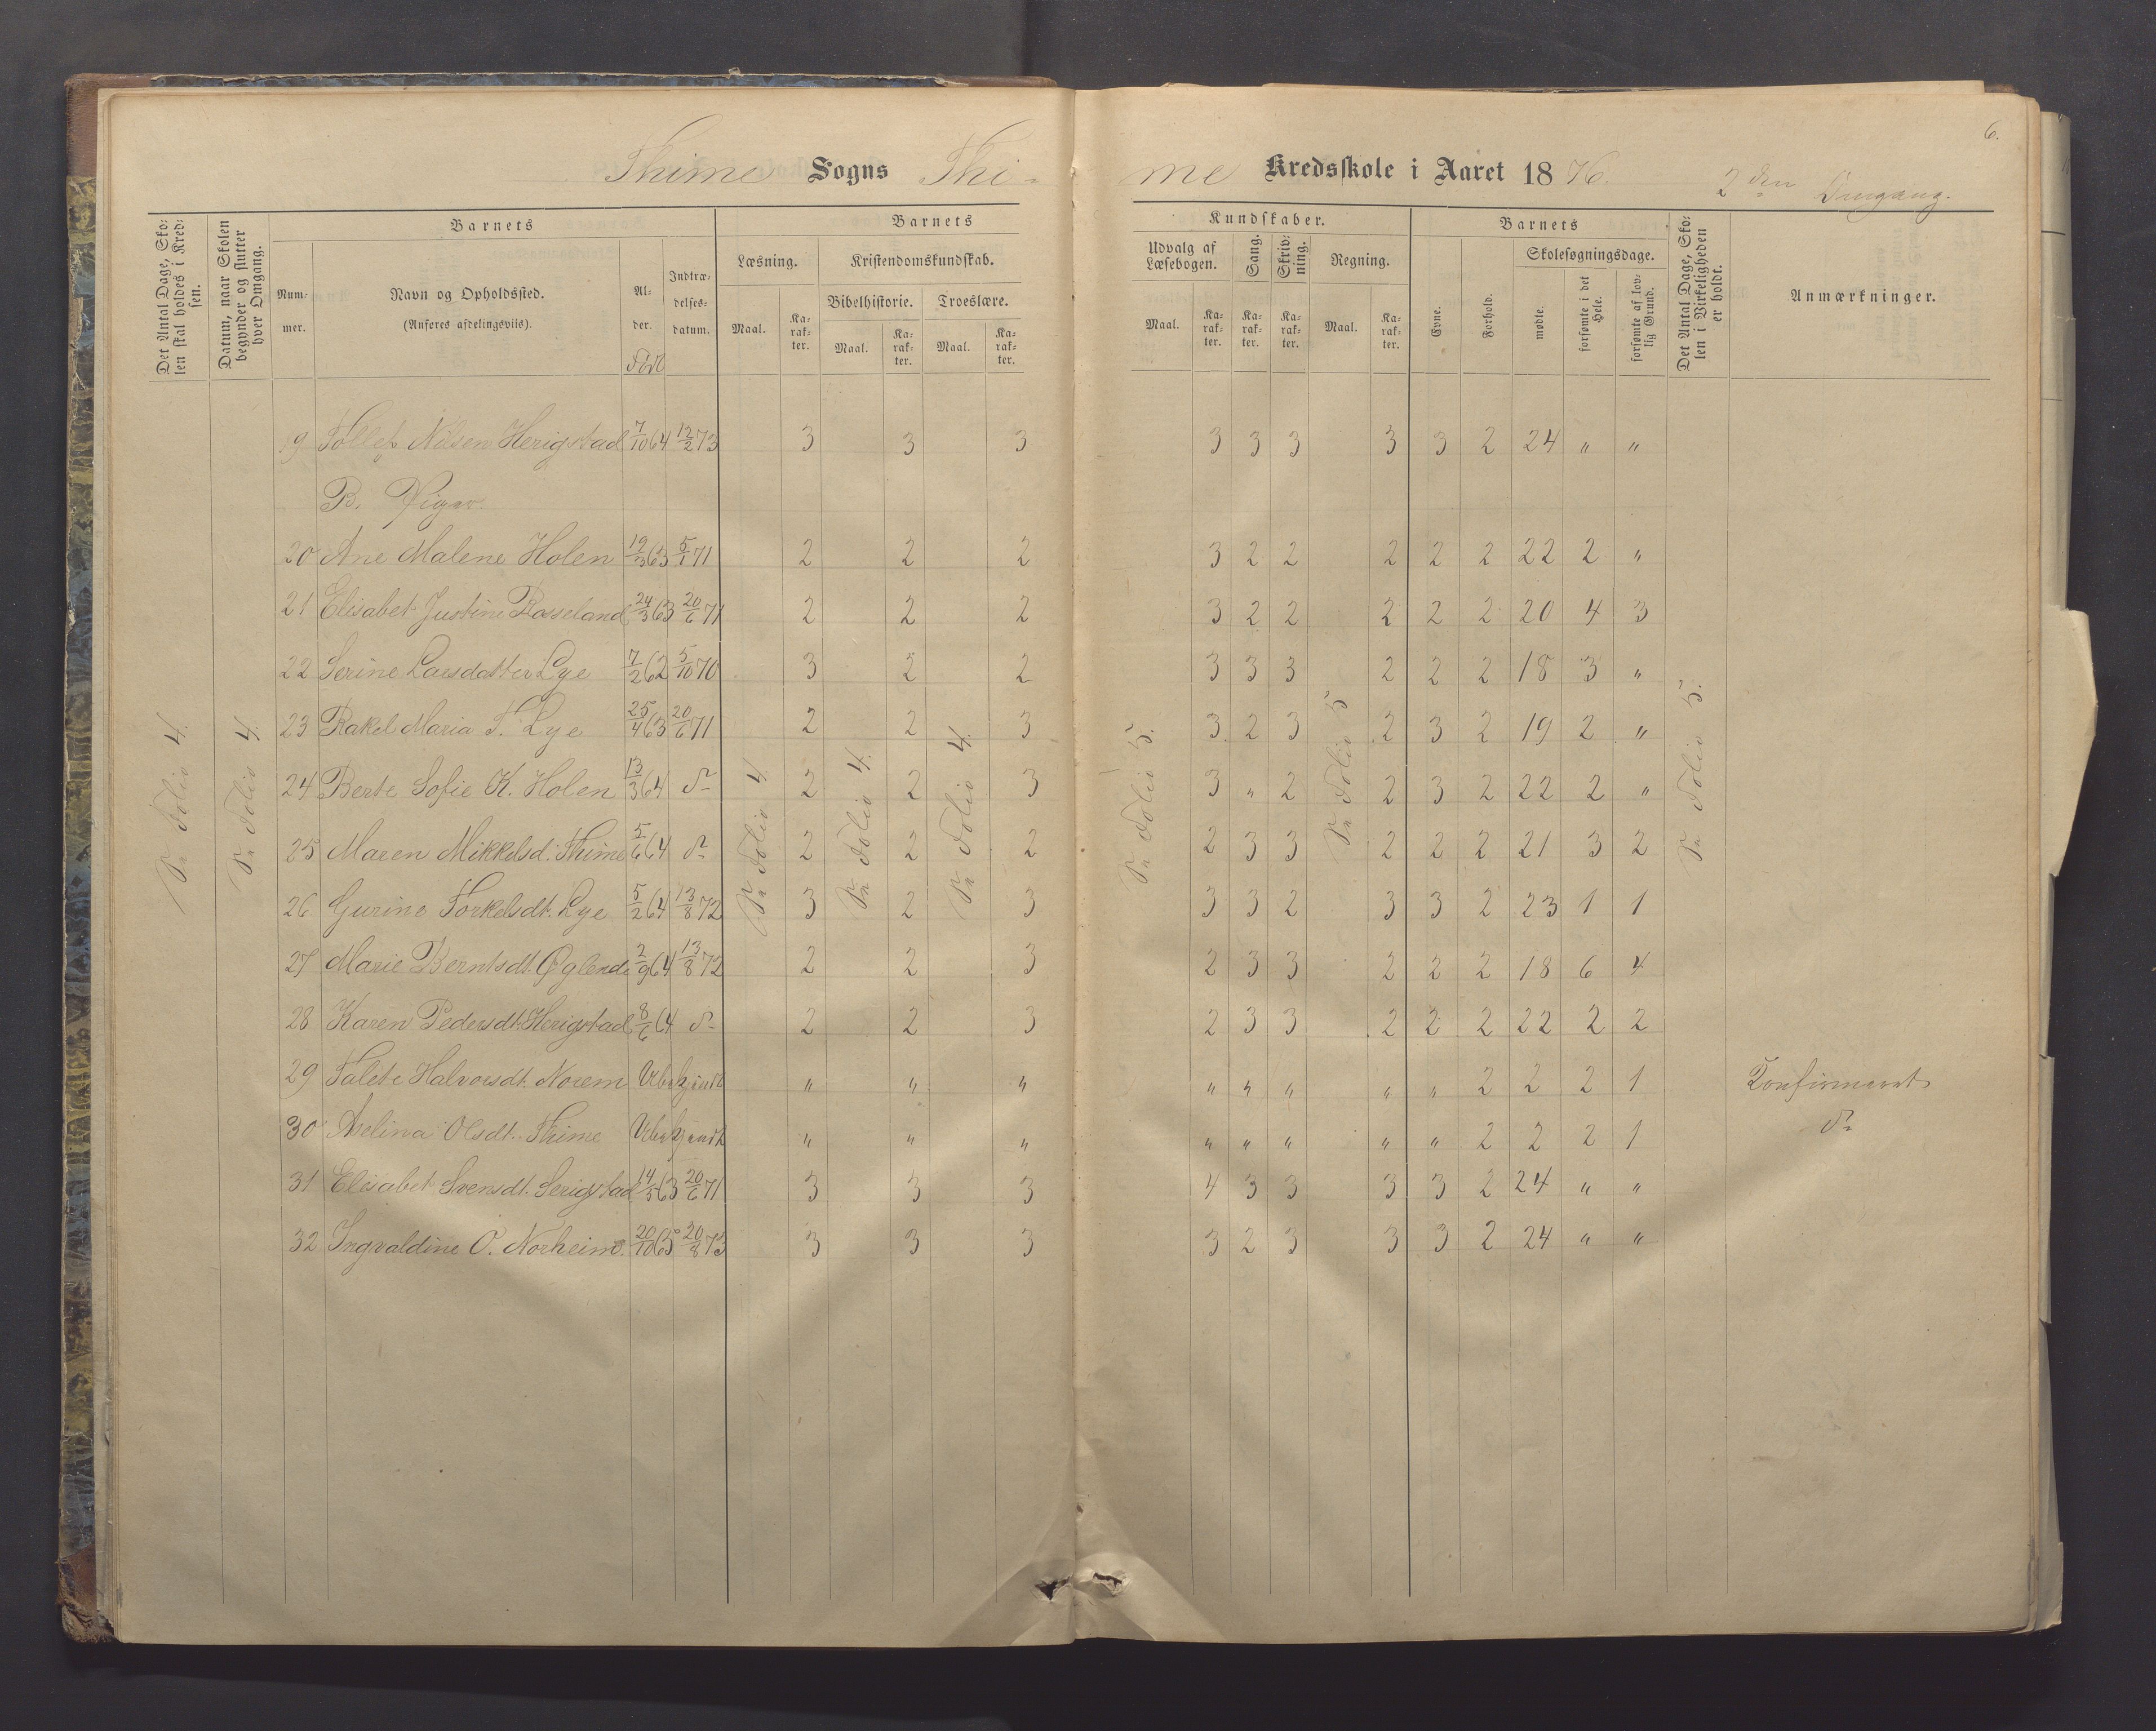 6.
Thime Sogns Thi-
me Kredsskole i Aaret 1876.
2den Omgang.
Det Antal Dage, Sko-
len skal holdes i Kred-
sen.
Datum, naar Skolen
begynder og slutter
hver Omgang.
Barnets
Num-
mer.
Navn og Opholdssted.
(Anføres afdelingsviis).
Al-
der.
Født
Indtræ-
delses-
datum.
Barnets
Læsning.
Kristendomskundskab.
Bibelhistorie. Troeslære.
Maal. Ka-
rak-
ter.
Maal. Ka-
rak-
ter.
Maal. Ka-
rak-
ter.
Kundskaber.
Udvalg af
Læsebogen.
Sang.
Skriv-
ning.
Regning.
Maal. Ka-
rak-
ter.
Ka-
rak-
ter.
Ka-
rak-
ter.
Maal. Ka-
rak-
ter.
Barnets
Evne.
Forhold.
Skolesøgningsdage.
mødte.
forsømte i det
Hele.
forsømte af lov-
lig Grund.
Det Antal Dage, Sko-
len i Virkeligheden
er holdt.
Anmærkninger.
19 Tollef Nilsen Herigstad 7/10 64 12/2 73 3 3 3 3 3 3 3 3 2 24 " "
B. Piger.
20 Ane Malene Holen 19/3 63 5/1 71 2 2 2 3 2 2 2 2 2 22 2 "
21 Elisabet Justine Rosseland 24/3 63 20/6 71 2 2 2 3 2 2 2 2 2 20 4 3
22 Serine Larsdatter Lye 7/2 62 5/10 70 3 2 2 3 3 3 2 2 2 18 3 "
23 Rakel Maria T. Lye 25/4 63 20/6 71 2 2 3 3 2 3 2 3 2 19 2 "
24 Berte Sofie K. Holen 13/3 64 do 2 2 3 3 " 2 2 3 2 22 2 "
25 Maren Mikkelsd. Thime 5/6 64 do 2 2 2 2 3 3 2 2 2 21 3 2
26 Gurine Torkelsdt. Lye 5/2 64 13/8 72 3 2 3 3 3 2 3 3 2 23 1 1
27 Marie Berntsdt. Øglend 2/9 64 13/8 72 2 2 3 2 3 3 2 2 2 18 6 4
28 Karen Pedersdt. Herigstad 8/6 64 do 2 2 3 2 3 3 2 2 2 22 2 2
29 Talete Halvorsdt. Norem Ubekjendt " " " " " " " " 2 2 2 1 Konfirmeret
30 Aselina Olsdt. Thime Ubekjendt " " " " " " " " 2 2 2 1 do
31 Elisabet Svensdt. Serigstad 14/5 63 20/6 71 3 3 3 4 3 3 3 3 2 24 " "
32 Ingvaldine O. Norheim. 20/10 65 20/8 73 3 3 3 3 2 3 3 3 2 24 " "
Se Folio 4.
Se Folio 4.
Se Folio 4.
Se Folio 4.
Se Folio 4.
Se Folio 5.
Se Folio 5
Se Folio 5.